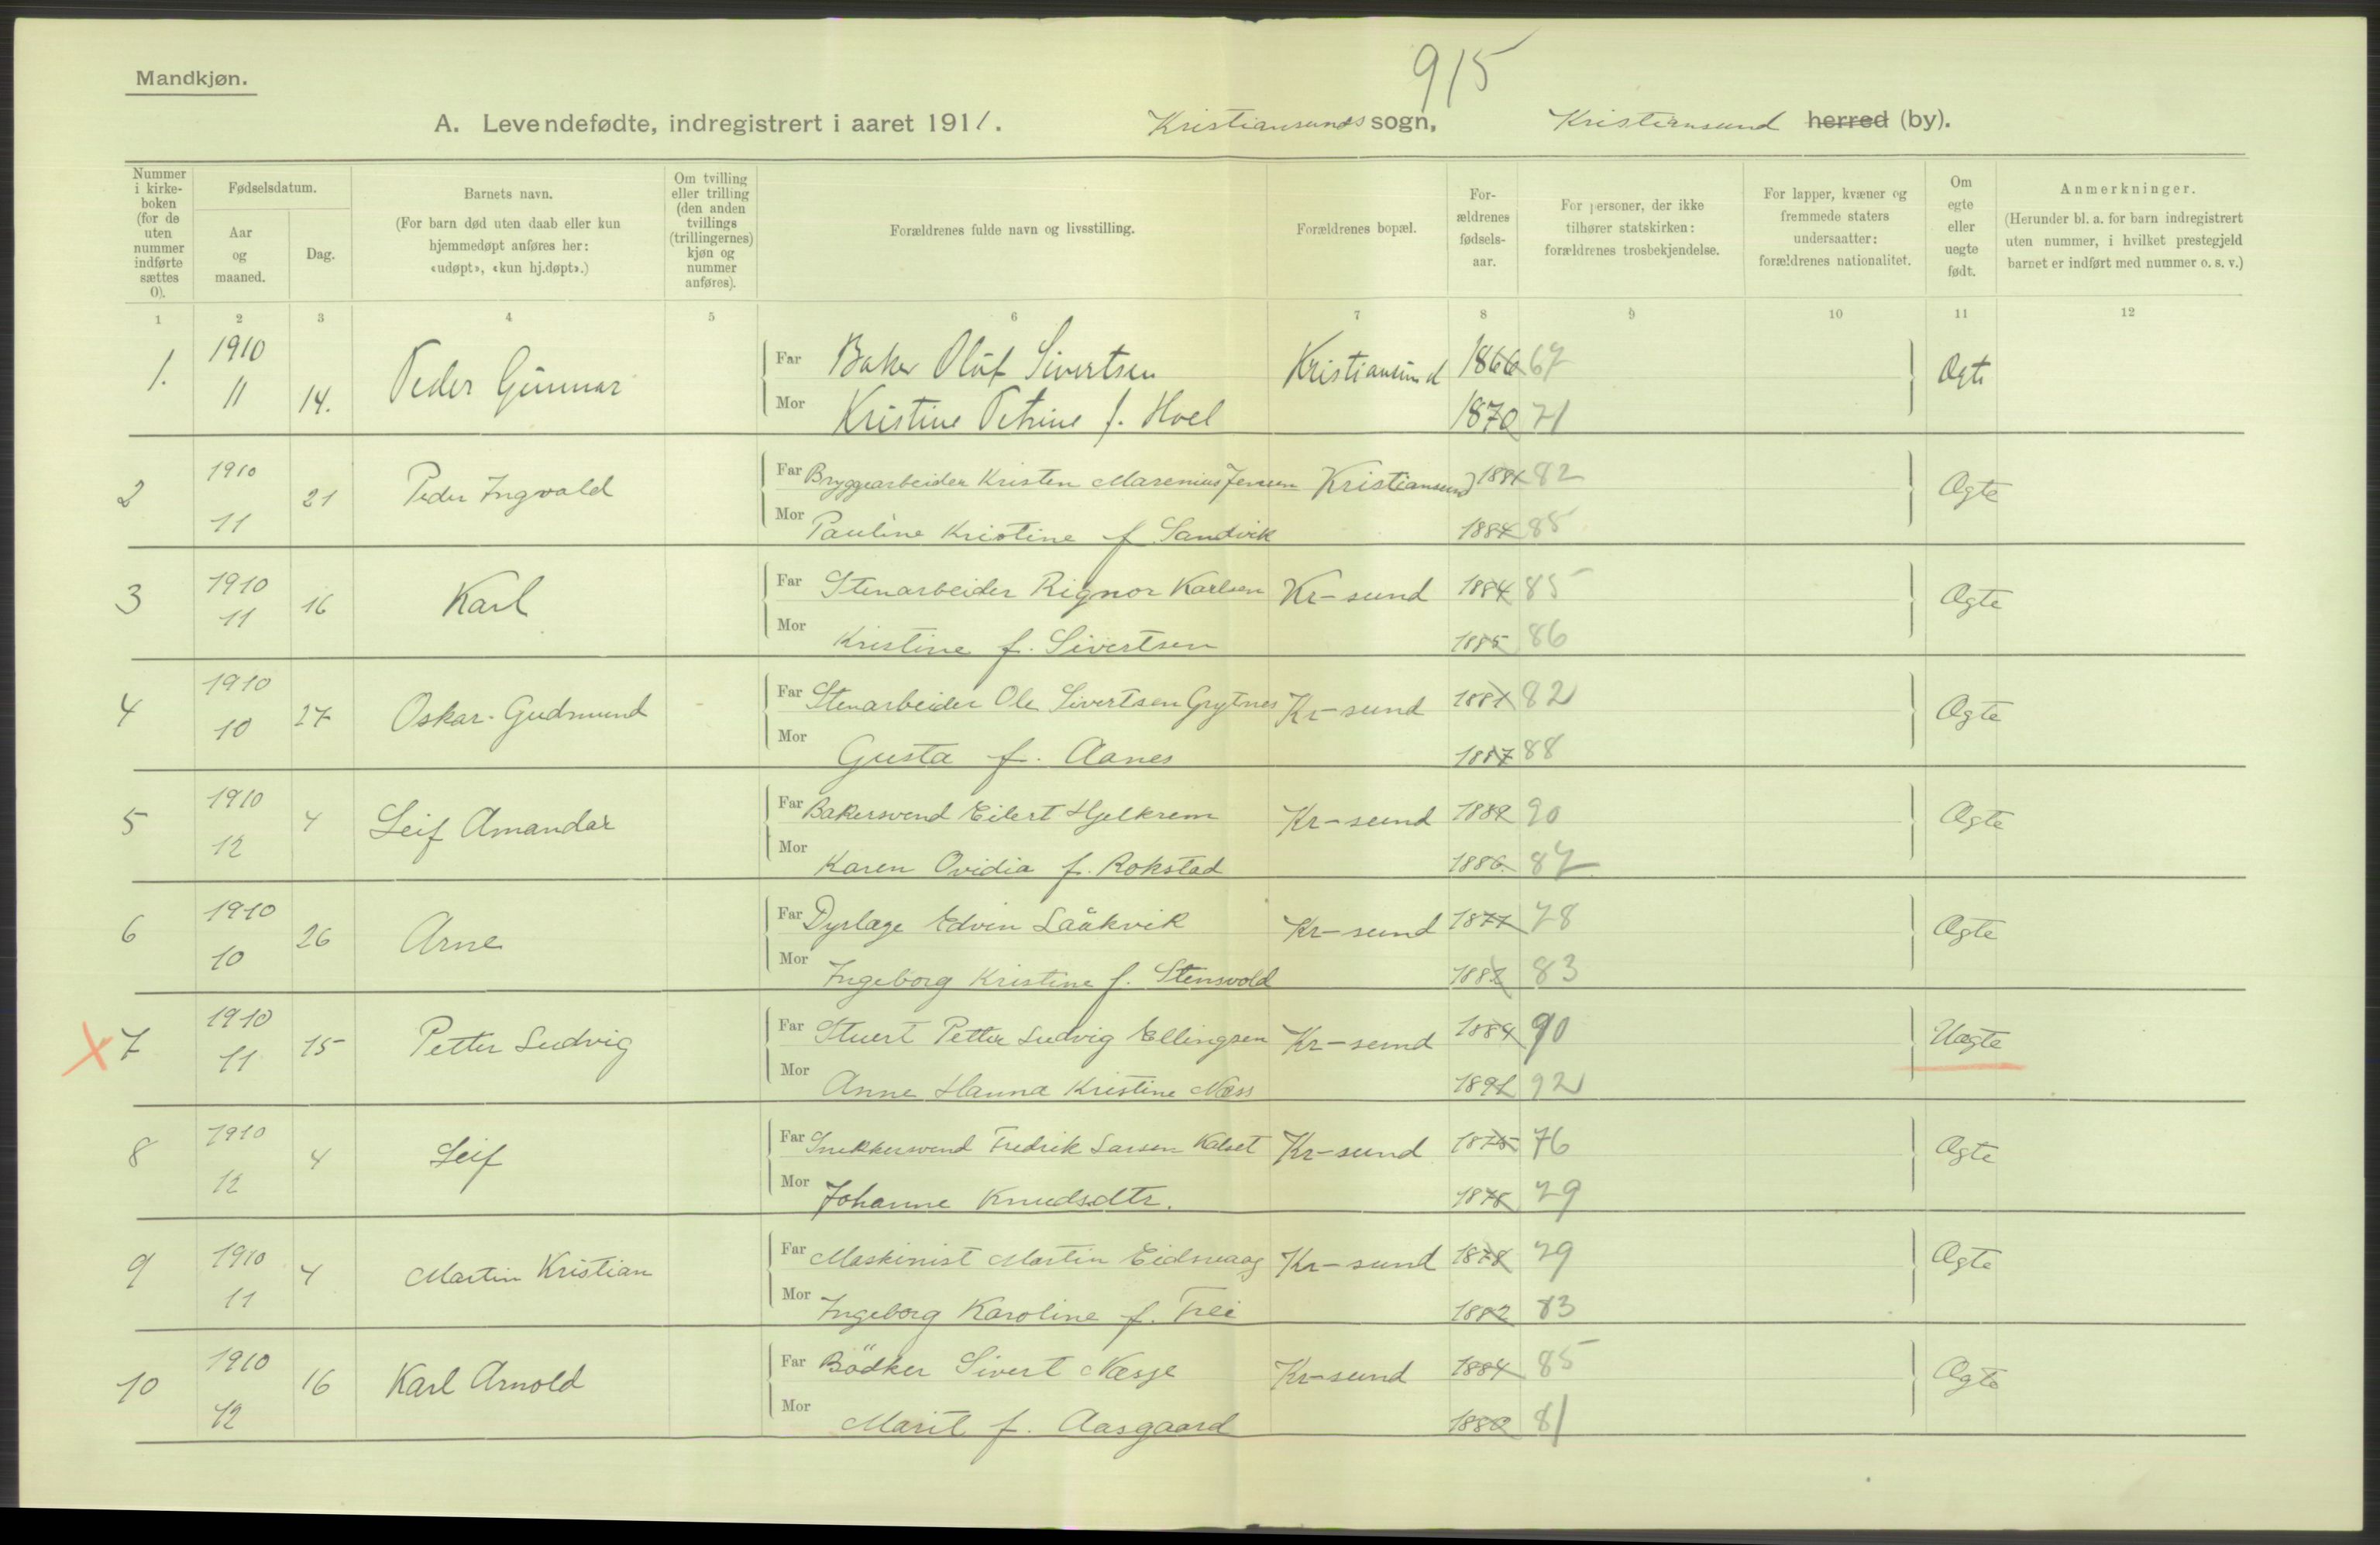 915
Mandkjøn.
A. Levendefødte, indregistrert i aaret 1911. Kristiansunds sogn, Kristiansund herred (by).
Nummer i kirke-boken (for de uten nummer indførte sættes 0).
Fødselsdatum.
Aar og maaned.
Dag.
Barnets navn.
(For barn død uten daab eller kun hjemmedøpt anføres her: «udøpt», «kun hj.døpt».)
Om tvilling eller trilling (den anden tvillings (trillingernes) kjøn og nummer anføres).
Forældrenes fulde navn og livsstilling.
Forældrenes bopæl.
For-ældrenes fødsels-aar.
For personer, der ikke tilhører statskirken: forældrenes trosbekjendelse.
For lapper, kvæner og fremmede staters undersaatter: forældrenes nationalitet.
Om egte eller uegte født.
Anmerkninger.
(Herunder bl. a. for barn indregistrert uten nummer, i hvilket prestegjeld barnet er indført med nummer o. s. v.)
1 2 3 4 5 6 7 8 9 10 11 12
1. 1910 11 14. Peder Gunnar Far Baker Oluf Sivertsen Kristiansund 1866 67 Ægte
Mor Kristine Petrine f. Hoel 1870 71
2 1910 11 21 Peder Ingvald Far Bryggearbeider Kristen Marenius Jensen Kristiansund 1881 82 Ægte
Mor Pauline Kristine f Sandvik 1884 85
3 1910 11 16 Karl Far Stenarbeider Rignor Karlsen Kr-sund 1884 85 Ægte
Mor Kristine f. Sivertsen 1885 86
4 1910 10 27 Oskar Gudmund Far Stenarbeider Ole Sivertsen Grytnes Kr-sund 1881 82 Ægte
Mor Gusta f. Aanes 1887 88
5 1910 12 4 Leif Amandar Far Bakersvend Eilert Hjelkrem Kr-sund 1889 90 Ægte
Mor Karen Ovidia f. Rokstad 1886 87
6 1910 10 26 Arne Far Dyrlæge Edvin Laåkvik Kr-sund 1877 78 Ægte
Mor Ingeborg Kristine f. Stensvold 1882 83
7 1910 11 15 Petter Ludvig Far Stuert Petter Ludvig Ellingsen Kr-sund 1889 90 Uægte
Mor Anne Hanna Kristine Næss 1891 92
8 1910 12 4 Leif Far Snekkersvend Fredrik Larsen Kalset Kr-sund 1875 76 Ægte
Mor Johanne Knudsdtr. 1878 79
9 1910 11 4 Martin Kristian Far Maskinist Martin Eidsvaag Kr-sund 1878 79 Ægte
Mor Ingeborg Karoline f. Frei 1882 83
10 1910 12 16 Karl Arnold Far Bödker Sivert Næsje Kr-sund 1884 85 Ægte
Mor Marit f. Aasgaard 1880 81